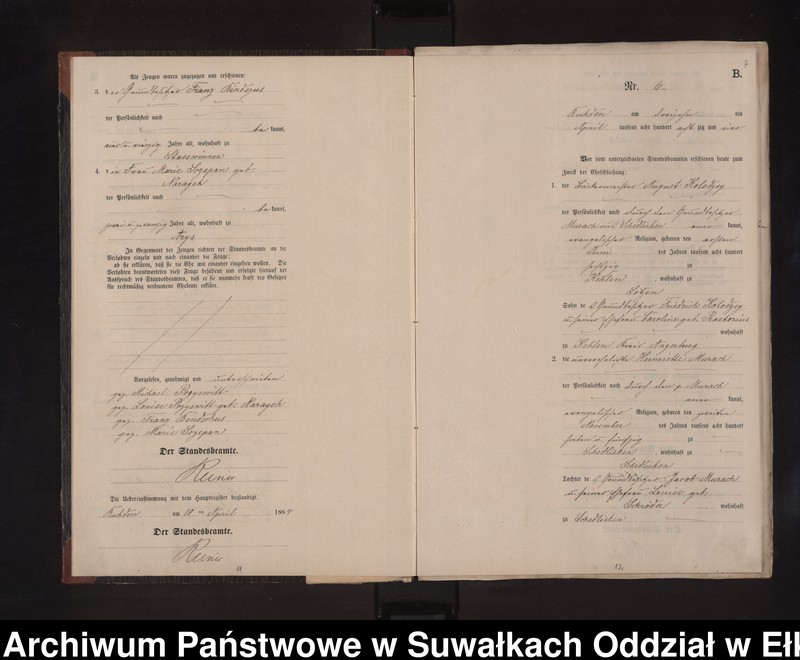 Als Zeugen waren zugezogen und erschienen:
3. der Grundbesitzer Franz Bendzus
der Persönlichkeit nach
be kannt,
vier u. vierzig Jahre alt, wohnhaft zu
Stasswinnen
4. die Frau Marie Sczepan geb.
Naraysch
der Persönlichkeit nach
be kannt,
zwei u. zwanzig Jahre alt, wohnhaft zu
Arys
In Gegenwart der Zeugen richtete der Standesbeamte an die
Verlobten einzeln und nach einander die Frage:
ob sie erklären, daß sie die Ehe mit einander eingehen wollen. Die
Verlobten beantworteten diese Frage bejahend und erfolgte hierauf der
Ausspruch des Standesbeamten, daß er sie nunmehr kraft des Gesetzes
für rechtmäßig verbundene Eheleute erkläre.
Vorgelesen, genehmigt und unterschrieben
gez. Michael
gez. Louise geb. Naraysch
gez. Franz Bendzus
gez. Marie Sczepan
Der Standesbeamte.
Die Uebereinstimmung mit dem Hauptregister beglaubigt.
am 10 ten April 1884
Der Standesbeamte.
11
7
B.
Nr. 6.
am dreizehn ten
April tausend acht hundert acht zig und vier
Vor dem unterzeichneten Standesbeamten erschienen heute zum
Zweck der Eheschließung:
1. der Bäckermeister August Kolodzey
der Persönlichkeit nach durch den Grundbesitzer
Murach aus Schedlisken aner kannt,
evangelischer Religion, geboren den ersten
Juni des Jahres tausend acht hundert
sechzig zu
Kehlen, wohnhaft zu
Lötzen
Sohn des Grundbesitzer Friedrich Kolodzey
u. seiner Ehefrau Caroline geb.
wohnhaft
zu Kehlen Kreis Angerburg
2. die unverehelichte Heinriette Murach
der Persönlichkeit nach durch den p. Murach
aner kannt,
evangelischer Religion, geboren den zweiten
November des Jahres tausend acht hundert
sieben u. fünfzig zu
Schedlisken, wohnhaft zu
Schedlisken
Tochter des Grundbesitzer Jacob Murach
u. seiner Ehefrau Louise geb.
Schröda wohnhaft
zu Schedlisken
12.
Archiwum Państwowe w Suwałkach Oddział w Ełk